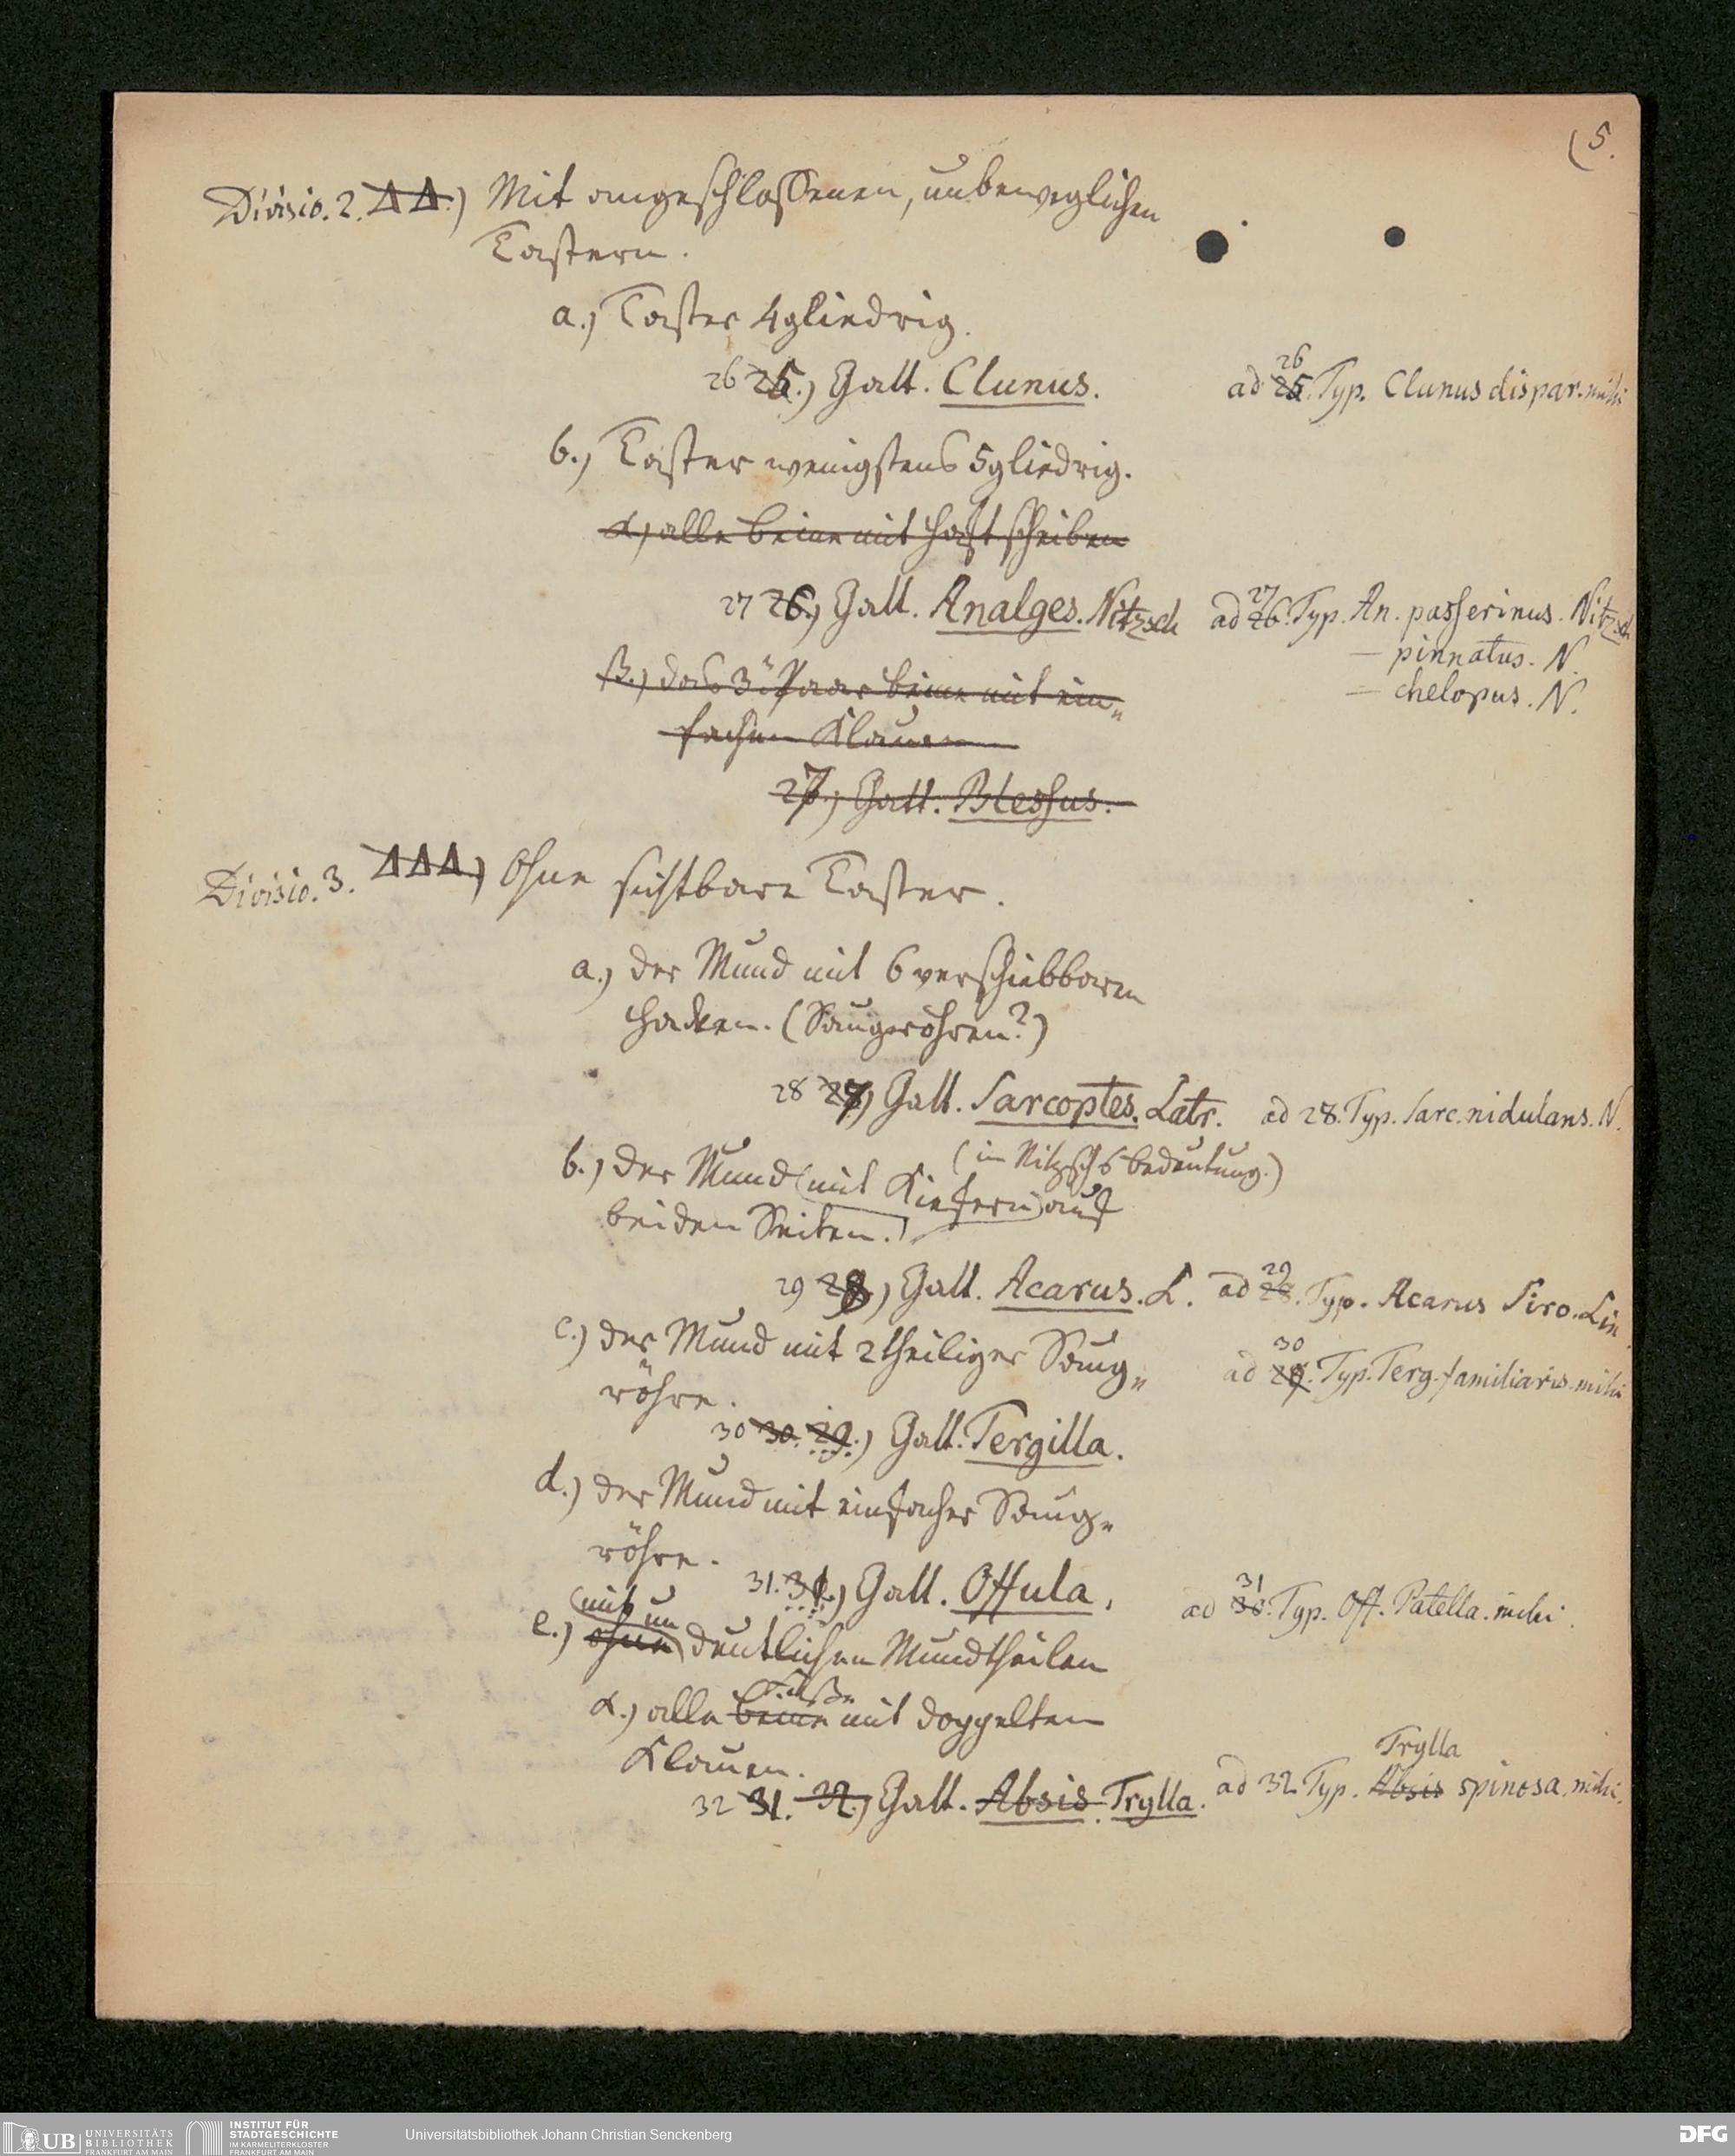 (5.
Divisio. 2. ΔΔ.) Mit angeschlossenen, unbeweglichen
Tastern.
a.) Taster 4gliedrig.
26 25.) Gatt. Clunus. ad 25. 26 Typ. Clunus dispar. mihi
b.) Taster wenigstens 5gliedrig.
α.) alle Beine mit Haftscheiben
27 26.) Gatt. Analges. Nitzsch ad 26. 27 Typ. An. passerinus. Nitzsch
— pinnatus. N.
— chelopus. N.
β.) das 3te Paar Beine mit ein„
fachen Klauen
27.) Gatt. Blessus.
Divisio. 3. ΔΔΔ.) Ohne sichtbare Taster.
a.) der Mund mit 6 verschiebbaren
Hacken. (Saugröhren?)
28 27.) Gatt. Sarcoptes. Latr. ad 28. Typ. Sarc. nidulans. N.
(in Nitzschs Bedeutung.)
b.) der Mund (mit Kiefern) auf
beiden Seiten.
29 28.) Gatt. Acarus. L. ad 28. 29 Typ. Acarus Siro. Lin
c.) der Mund mit 2theiliger Saug„
röhre.
ad 29. 30 Typ. Terg. familiaris. mihi
30 30. 29.) Gatt. Tergilla.
d.) der Mund mit einfacher Saug„
röhre.
31. 31.) Gatt. Offula. ad 30. 31 Typ. Off. Patella. mihi.
mit un
e.) ohne deutlichen Mundtheilen
Füße
α.) alle Beine mit doppelten
Klauen.
Trylla
32 31. 32.) Gatt. Absis. Trylla. ad 32 Typ. Absis spinosa. mihi.
UB UNIVERSITÄTS
BIBLIOTHEK
FRANKFURT AM MAIN
INSTITUT FÜR
STADTGESCHICHTE
IM KARMELITERKLOSTER
FRANKFURT AM MAIN
Universitätsbibliothek Johann Christian Senckenberg
DFG